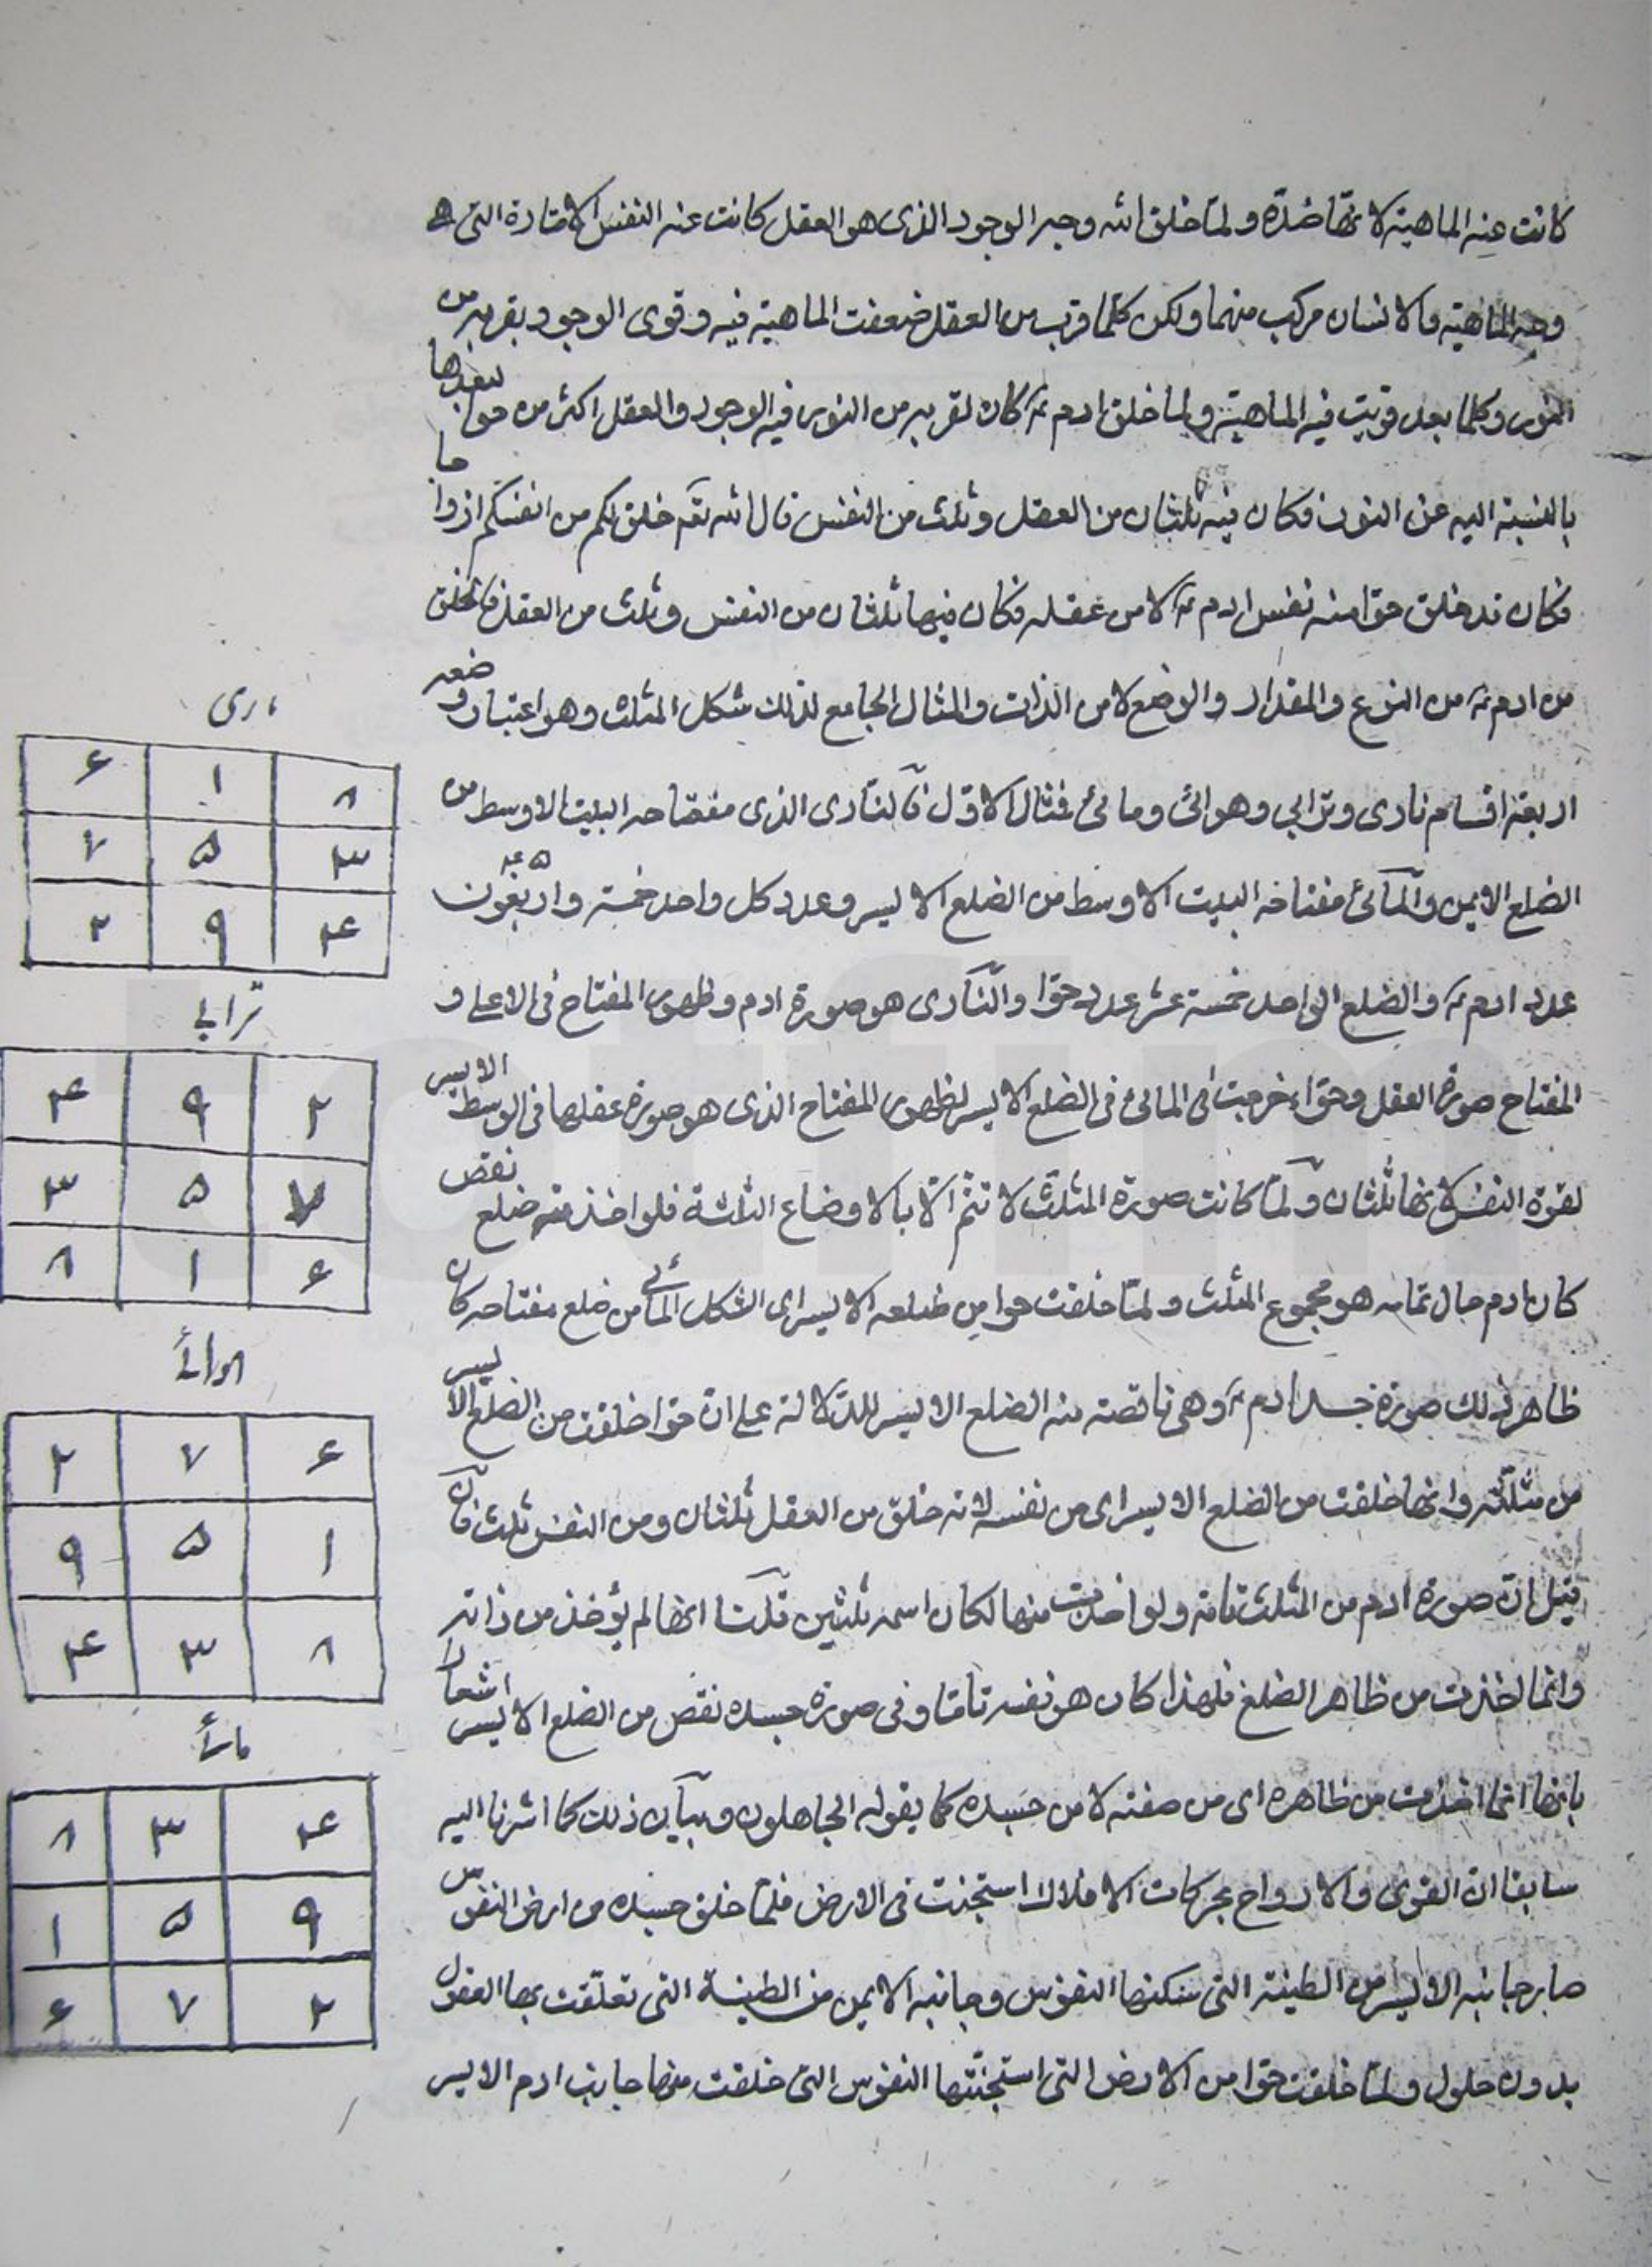 كانت عنه الماهية لانها ضدّه ولمّا خلق الله وجه الوجود الذى هو العقل كانت عنه النفس الامّارة التى هى
وجه الماهية والانسان مركب منهما ولكن كلّما قرب من العقل ضعفت الماهية فيه وقوى الوجود بقربه من
النور وكلما بعد قويت فيه الماهية ولما خلق ادم ع كان لقربه من النور فيه الوجود والعقل اكثر من حوا لبعدها
بالنسبة اليه عن النور فكان فيه ثلثان من العقل وثلث من النفس قال الله تعم خلق لكم من انفسكم ازواجا
فكان قد خلق حوا منه نفس ادم ع لا من عقله فكان فيها ثلثان من النفس وثلث من العقل فالخلق
من ادم ع من النوع والمقدار والوضع لا من الذات والمثال الجامع لذلك شكل المثلث وهو اعتبار وضعه
اربعة اقسام نارى وترابي وهوائى ومائى فمثال الاوّل فالنارى الذى مفتاحه البيت الاوسط من
الضلع الايمن والمائى مفتاحه البيت الاوسط من الضلع الايسر وعدد كل واحد خمسة واربعون ۴۵
عدد ادم ع والضلع الواحد خمسة عشر عدد حوّا والنارى هو صورة ادم وظهور المفتاح فى الاعلى و
المفتاح صورة العقل وحوّاء خرجت فى المائى فى الضلع الايسر لظهور المفتاح الذى هو صورة عقلها فى الوسط الايسر
لقوة النفس لانها ثلثان ولمّا كانت صورة المثلث لا تتمّ الّا بالاوضاع الثلثة فلو اخذ منه ضلع نقص
كان ادم حال تمامه هو مجموع المثلث ولمّا خلقت حوا من ضلعه الايسر اى الشكل المائى من ضلع مفتاحه كان
ظاهر ذلك صورة جسد ادم ع وهى ناقصة منه الضلع الايسر للدّلالة على انّ حوّا خلقت من الضلع الايسر
من مثلّثه وانها خلقت من الضلع الايسر اى من نفسه لانه خلق من العقل ثلثان ومن النفس ثلث فان
قيل انّ صورة ادم من المثلث تامّة ولو اخذت منها لكان اسمه ثلثين قلنا انها لم يؤخذ من ذاته
وانما اخذت من ظاهر الضلع فلهذا كان هو نفسه تامّا وفى صورة جسده نقص من الضلع الايسر اشعارا
بانها انما اخذت من ظاهره اى من صفته لا من جسده كما يقوله الجاهلون وبيان ذلك كما اشرنا اليه
سابقا ان القوى والارواح بحركات الافلاك استجنت فى الارض فلمّا خلق جسده من ارض النفوس
صار جانبه الايسر من الطينة التى سكنتها النفوس وجانبه الايمن من الطينة التى تعلّقت بها العقول
بدون حلول ولمّا خلقت حوّا من الارض التى استجنّتها النفوس التى خلقت منها جانب ادم الايسر
نارى
۸ ۱ ۶
۳ ۵ ۷
۴ ۹ ۲
ترابي
۲ ۹ ۴
۷ ۵ ۳
۶ ۱ ۸
هوائى
۶ ۷ ۲
۱ ۵ ۹
۸ ۳ ۴
مائى
۴ ۳ ۸
۹ ۵ ۱
۲ ۷ ۶